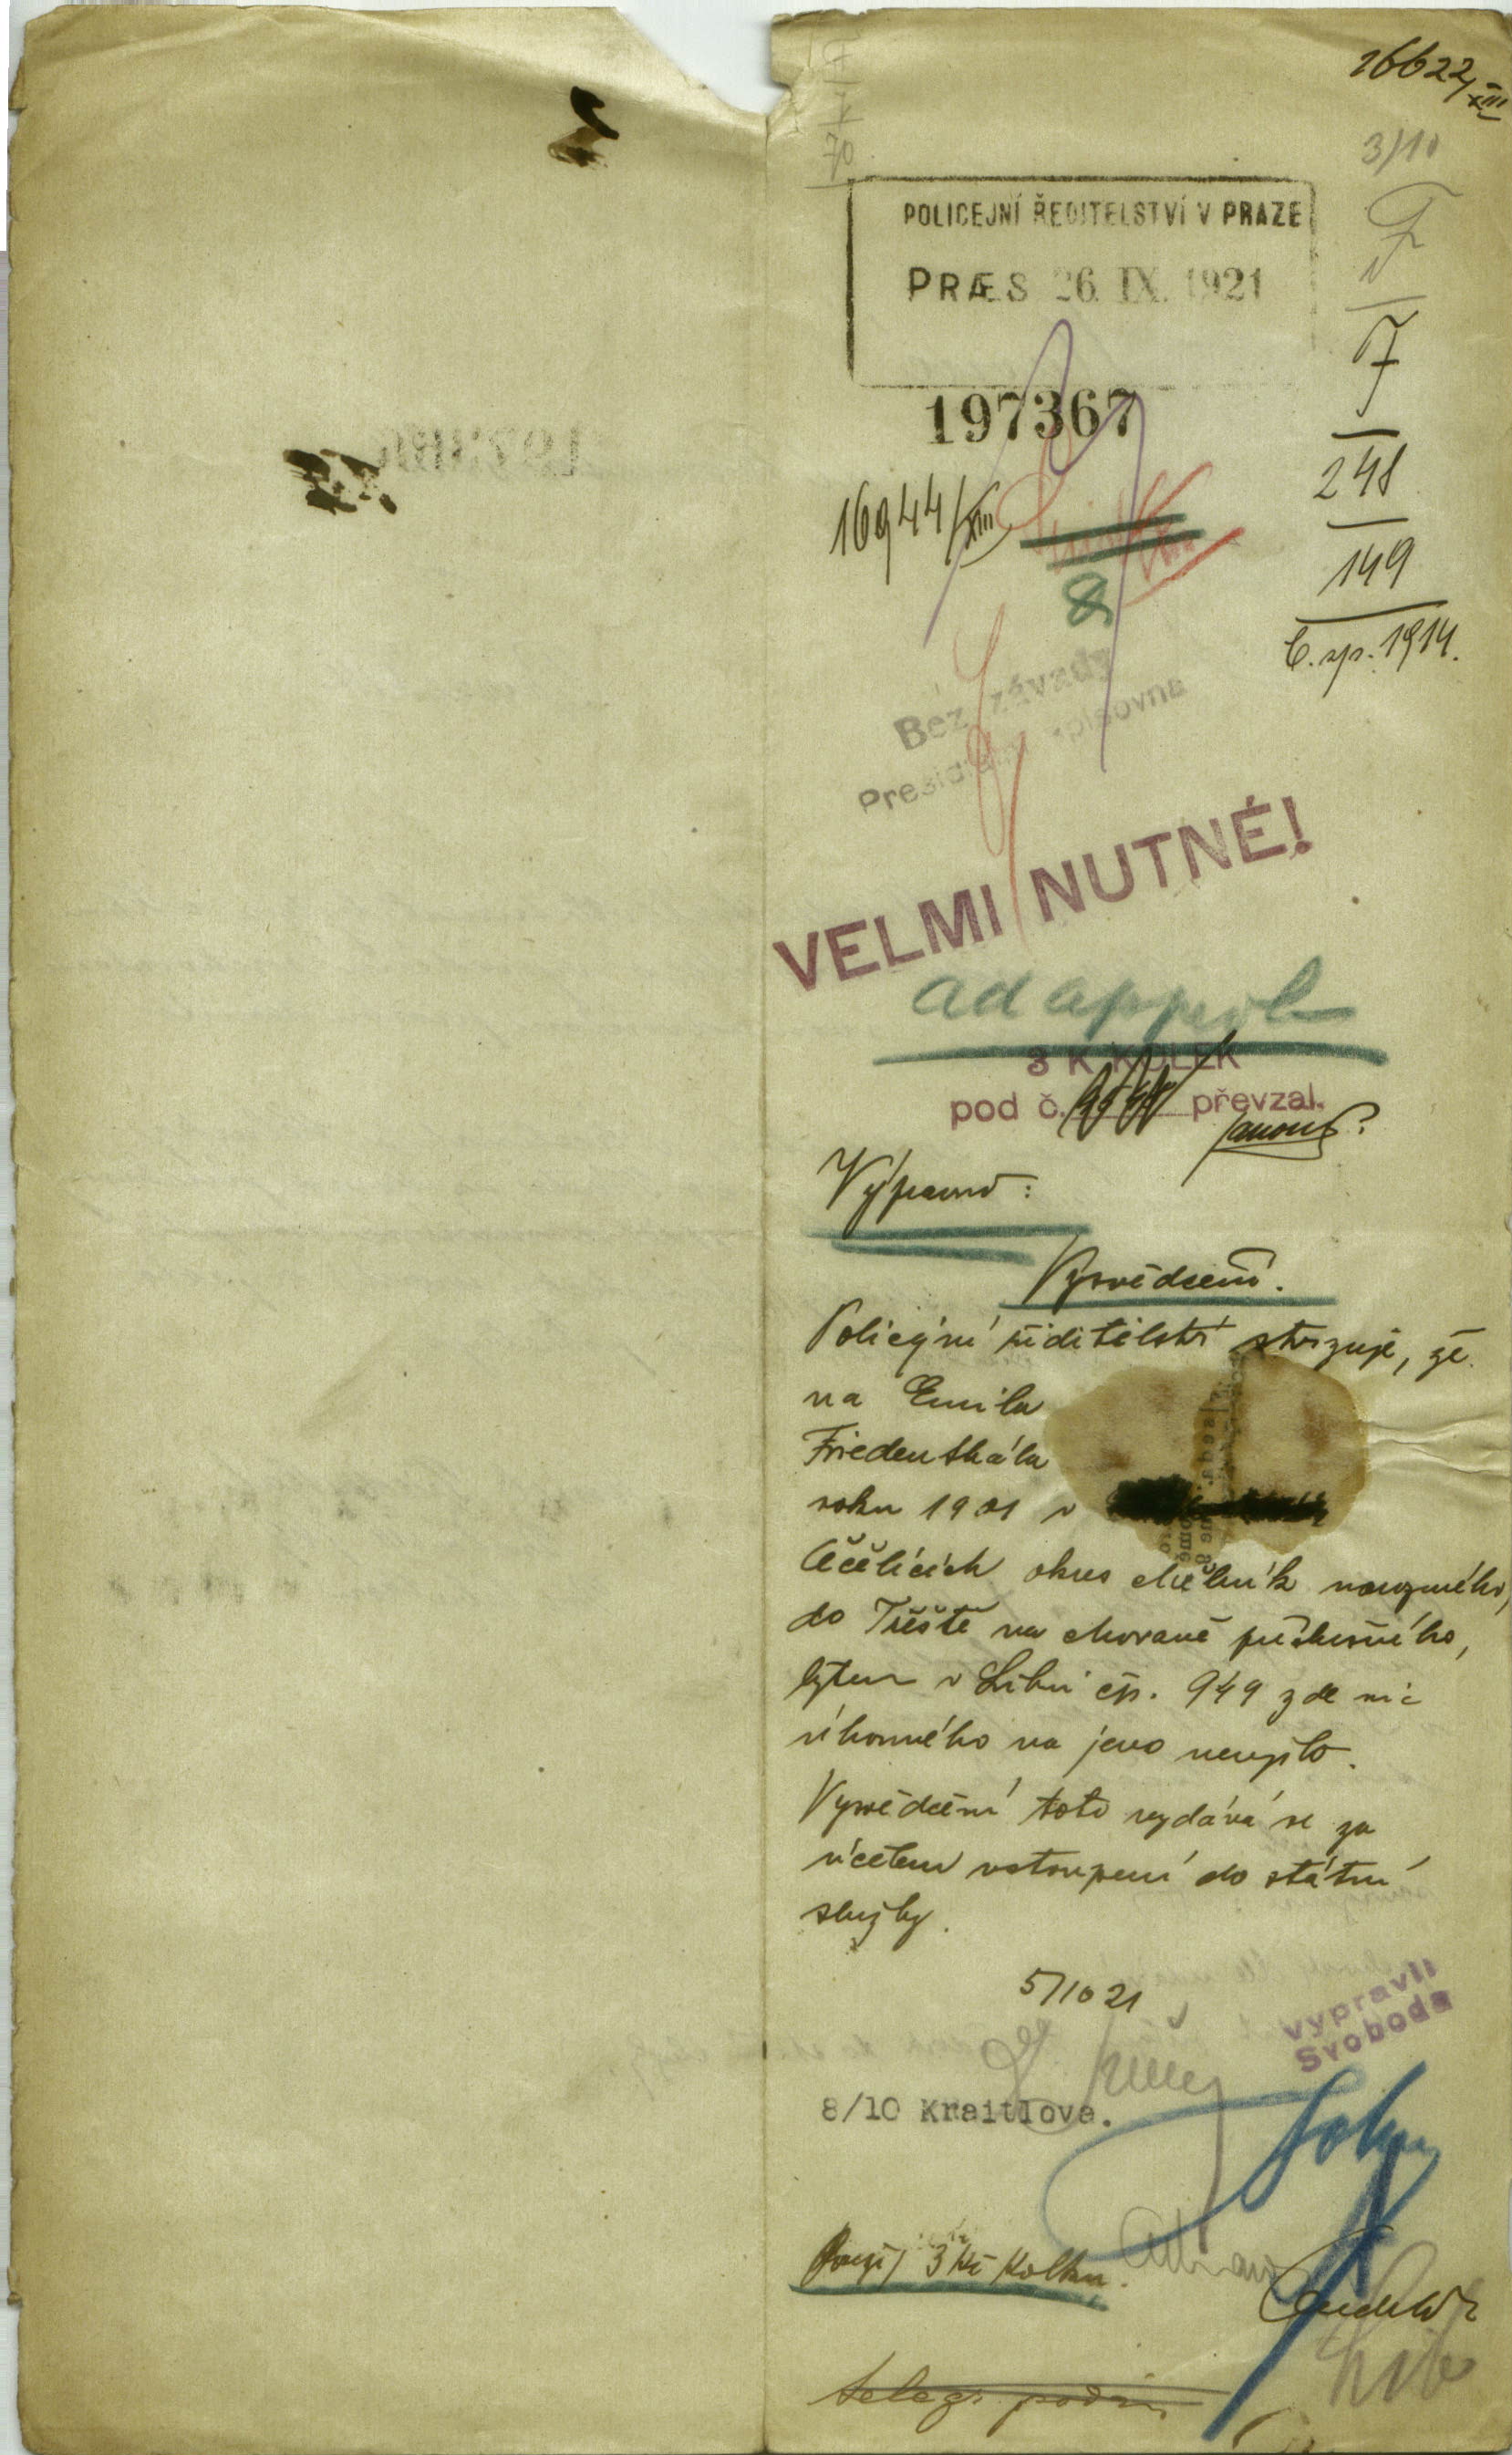 16622/XIII
3/10
POLICEJNÍ ŘEDITELSTVÍ V PRAZE
PRÆS 26. IX. 1921
F
248
149
197367
16944/XIII
Bez závady
Presidiální spisovna
VELMI NUTNÉ!
ad approb
3 K KOLEK
pod č. převzal.
Výprava:
Vysvědčení.
Policejní ředitelství stvrzuje, že
na Emila
Friedenthála
roku 1901 v
Čečelicích okres Mělník narozeného,
do Třeště na Moravě příslušného,
bytem v Libni čp. 949 zde nic
úhonného na jevo nevyšlo.
Vysvědčení toto vydává se za
účelem vstoupení do státní
služby.
5/10 21
vypravil
Svoboda
8/10 Kraitlova.
3 Kč Kolku.